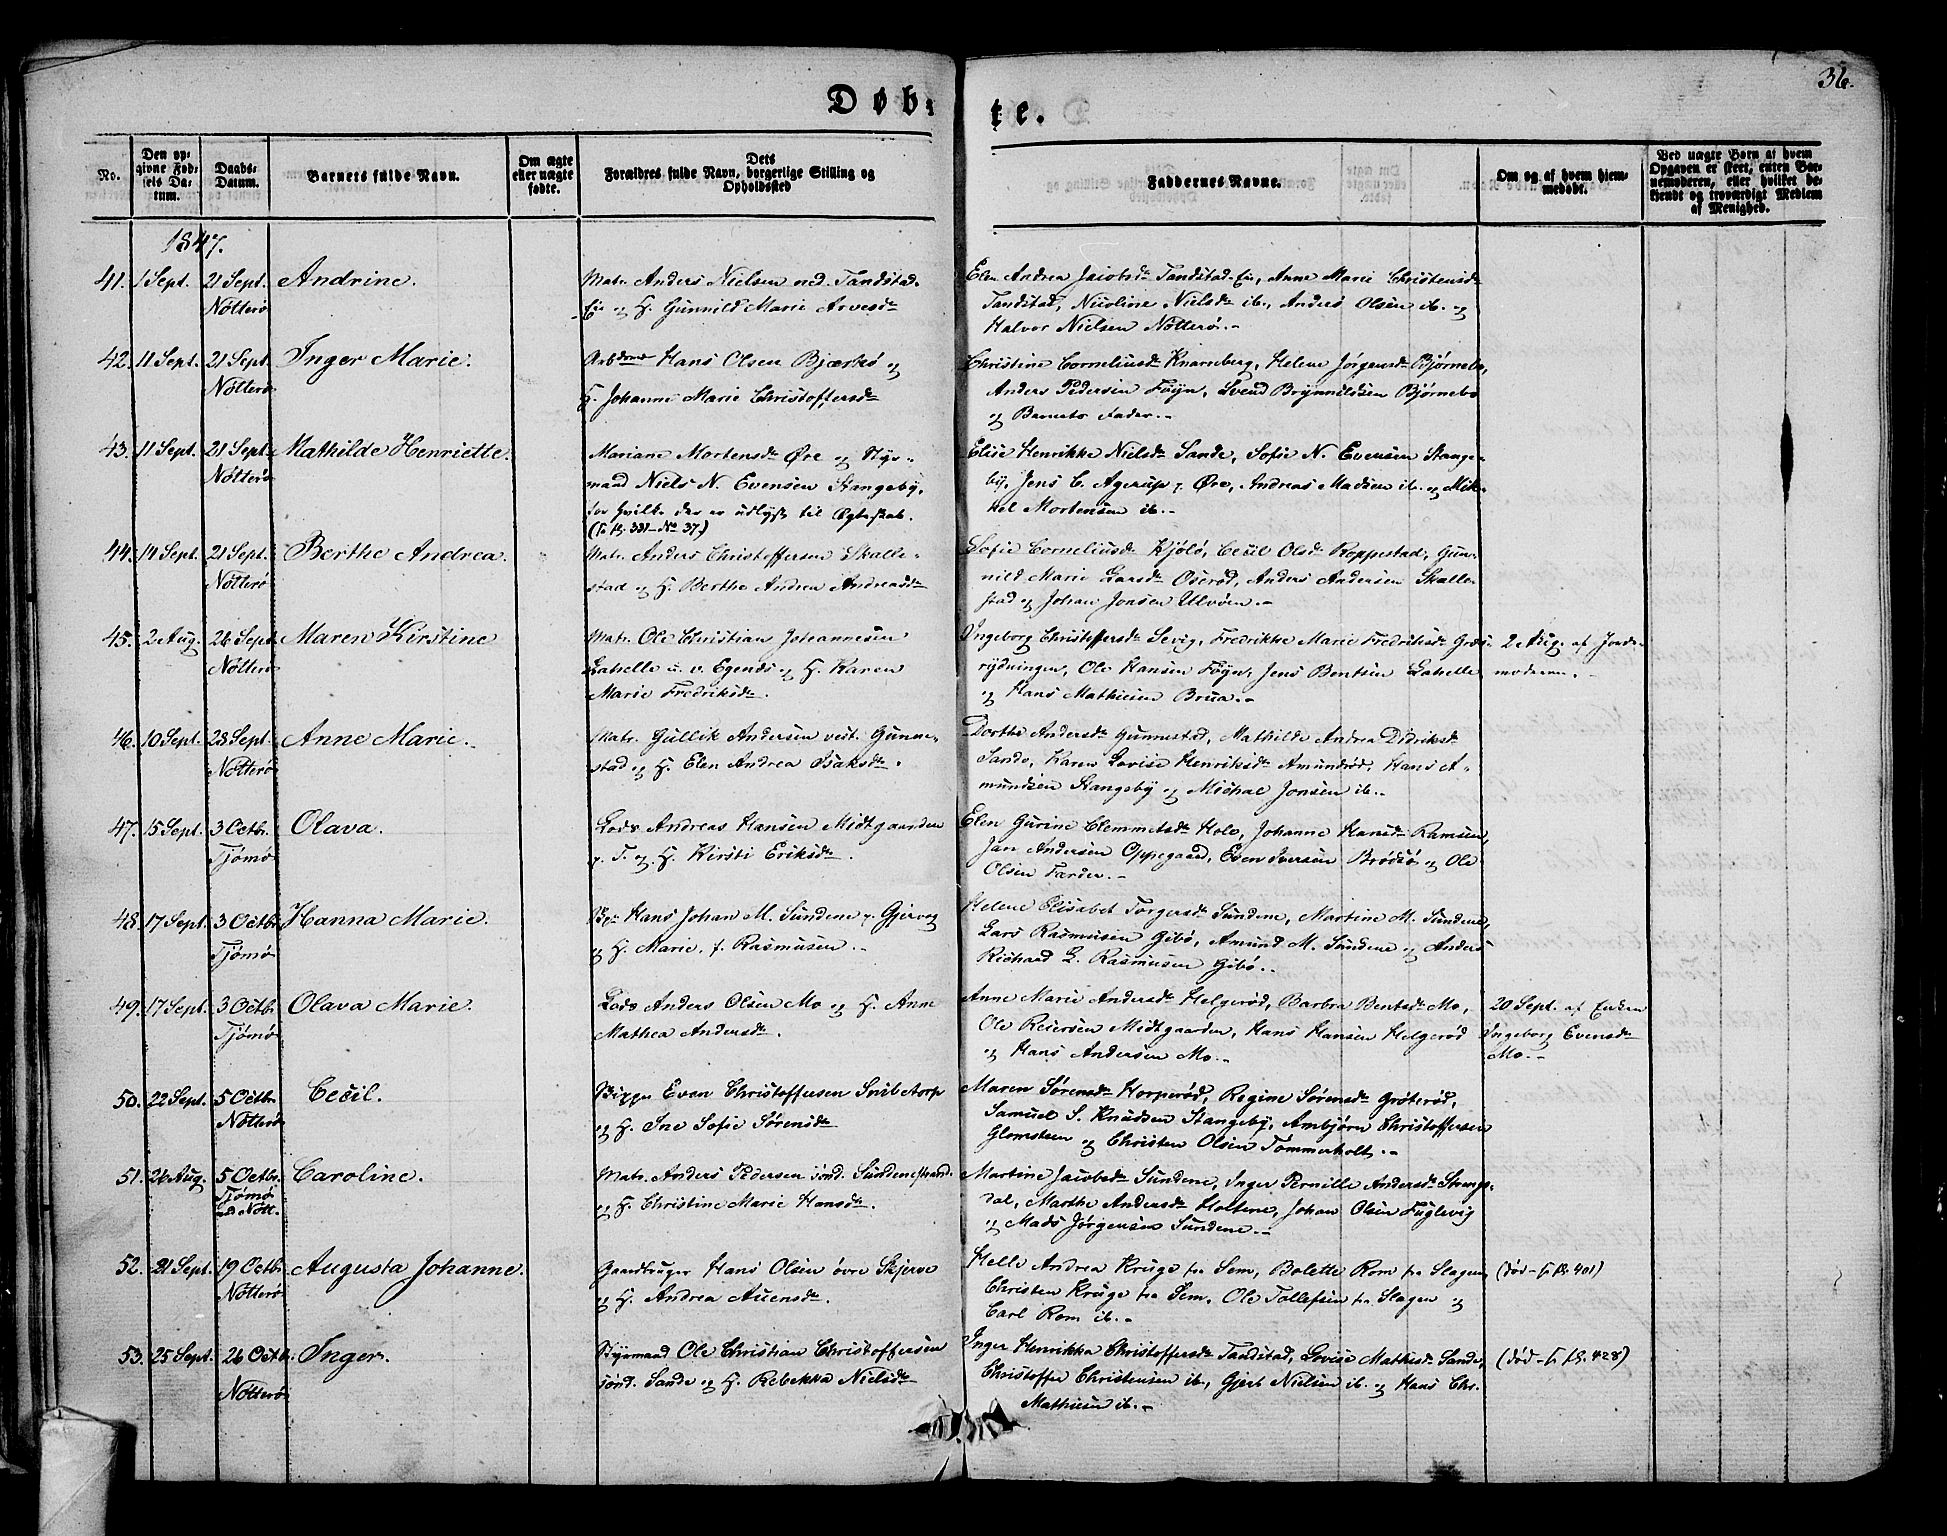 36.
Døbte.
No.
Den opgivne Fødsels Datum.
Daabs-Datum.
Barnets fulde Navn.
Om ægte eller uægte fødte.
Dets Forældres fulde Navn, borgerlige Stilling og Opholdssted
Faddernes Navne.
Om og af hvem hjemmedøbt.
Ved uægte Børn af hvem Opgaven er skeet, enten Barnemoderen, eller hvilket bekjendt og troværdigt Medlem af Menighed.
1847.
41. 1 Sept. 21 Sept. Nøtterø Andrine.
Matr. Anders Nielsen ned. Tandstad.
Eie og H. Gunnild Marie Arvesdr
Elen Andrea Jacobsdr Tandstad-Eie, Anne Marie Christensdr
Tandstad, Nicoline Nielsdr ib., Anders Olsen ib. og
Halvor Nielsen Nøtterø.-
42. 11 Sept. 21 Sept. Nøtterø Inger Marie.
Hans Olsen Bjærkø og
H. Johanne Marie Christoffersdr
Christine Corneliusdr Knarreberg, Helene Jørgensdr Bjørnebo,
Anders Pedersen Føÿn, Svend Brynnildsen Bjørnebo
og Barnets Fader.-
43. 11 Sept. 21 Sept. Nøtterø Mathilde Henriette.
Mariane Mortensdr Øre og Styr-
mand Niels N. Evensen Stangeby,
for hvilke der er udlyst til Ægteskab.
(Se fl. 331 - No 37.)
Elise Henrikke Nielsdr Sande, Sofie N. Evensen Stange-
by, Jens C. Agerup p. Øre, Andreas Madsen ib. og Mik-
kel Mortensen ib.-
44. 14 Sept. 21 Sept. Nøtterø Berthe Andrea.
Matr. Anders Christoffersen Skalle-
stad og H. Berthe Andrea Andreasdr
Sofie Corneliusdr Kjølø, Cecil Olsdr Roppestad, Gun-
nild Marie Larsdr Oserød, Anders Andersen Skalle-
stad og Johan Jonsen Ulvøen.-
45. 2 Aug. 26 Sept. Nøtterø Maren Kirstine
Matr. Ole Christian Johannesen
Lahelle u. v. Egenæs og H. Karen
Marie Fredriksdr.
Ingeborg Christoffersdr Sevig, Fredrikke Marie Fredriksdr Græs-
rydningen, Ole Hansen Føÿn, Jens Bentsen Lahelle
og Hans Mathisen Brua.-
2 Aug. af Jorde-
moderen.-
46. 10 Sept. 28 Sept. Nøtterø Anne Marie.
Matr. Gullik Andersen vest. Gunne-
stad og H. Elen Andrea Isaksdr.
Dorthe Andersdr Gunnestad, Mathilde Andrea Didriksdr
Sande, Karen Lovise Henriksdr Amundrød, Hans A-
mundsen Stangeby og Michal Jonsen ib.-
47. 15 Sept. 3 Octbr. Tjømø Olava.
Lods Andreas Hansen Midtgaarden
p. T. og H. Kirsti Eriksdr.
Elen Gurine Clemmetsdr Hole, Johanne Hansdr Ramsen,
Jan Andersen Oppegaard, Even Iversen Brødsø og Ole
Olsen Færder.-
48. 17 Sept. 3 Octbr. Tjømø Hanna Marie.
Hans Johan M. Sundene p. Gjervog
og H. Marie, f. Rasmusen.-
Helene Elisabet Torgersdr Sundene, Martine M. Sundene,
Lars Rasmusen Gibø, Amund M. Sundene og Anders
Richard L. Rasmusen Gibø.-
49. 17 Sept. 3 Octbr. Tjømø Olava Marie.
Lods Anders Olsen Mo og H. Anne
Mathea Andersdr.
Anne Marie Andersdr Helgerød, Barbra Bentsdr Mo,
Ole Reiersen Midtgaarden, Hans Hansen Helgerød
og Hans Andersen Mo.-
20 Sept. af Enken
Ingeborg Evensdr
Mo.-
50. 22 Sept. 5 Octbr. Nøtterø Cecil.
Skippr Even Christoffersen Snibetorp
og H. Ine Sofie Sørensdr
Maren Sørensdr Horperød, Regine Sørensdr Grøterød,
Samuel S. Knudsen Stangeby, Ambjørn Christoffersen
Glomsteen og Christen Olsen Tømmerholt.-
51. 26 Aug. 5 Octbr. Tjømø Nøtt. Caroline.
Matr. Anders Pedersen sønd. Sundenestrand
og H. Christine Marie Hansdr.
Martine Jacobsdr Sundene, Inger Pernille Andersdr Spangs-
dal, Marthe Andersdr Holtene, Johan Olsen Fuglevig
og Mads Jørgensen Sundene.-
52. 21 Sept. 19 Octbr. Nøtterø Augusta Johanne.
Gaardbruger Hans Olsen øvre Skjerve
og H. Andrea Auensdr.
Helle Andrea Kruge fra Sem, Bolette Rom fra Slagen,
Christen Kruge fra Sem, Ole Tollefsen fra Slagen og
Carl Rom ib.-
(død - fl. 401)
53. 25 Sept. 26 Octbr. Nøtterø Inger.
Styrmand Ole Christian Christoffersen
sønd. Sande og H. Rebekka Nielsdr
Inger Henrikka Christoffersdr Tandstad, Lovise Mathisdr Sande,
Christoffer Christensen ib., Gjert Nielsen ib. og Hans Chr.
Mathisen ib.-
(død - fl. 428)